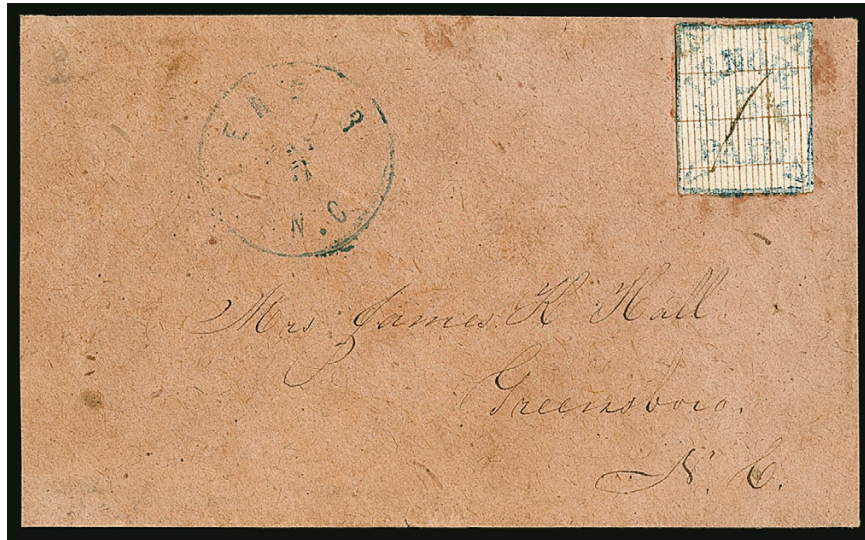 LENOIR
N.C.
LENOIR
PAID
Mrs. James K Hall.
Greensboro.
N. C.